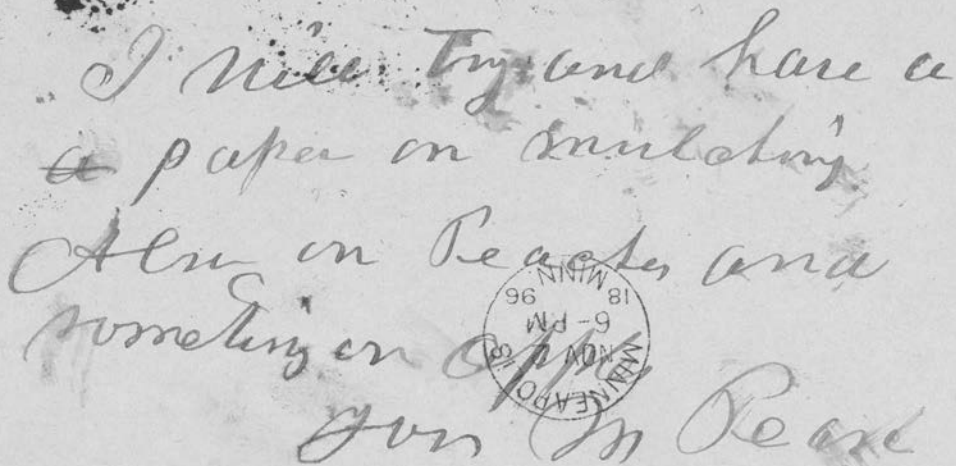 I will Try and have a
a paper on mulching
Also on Peaches and
someting on apples
yours Wm Pearce
MINNEAPOLIS MINN
NOV
6-PM
18 96